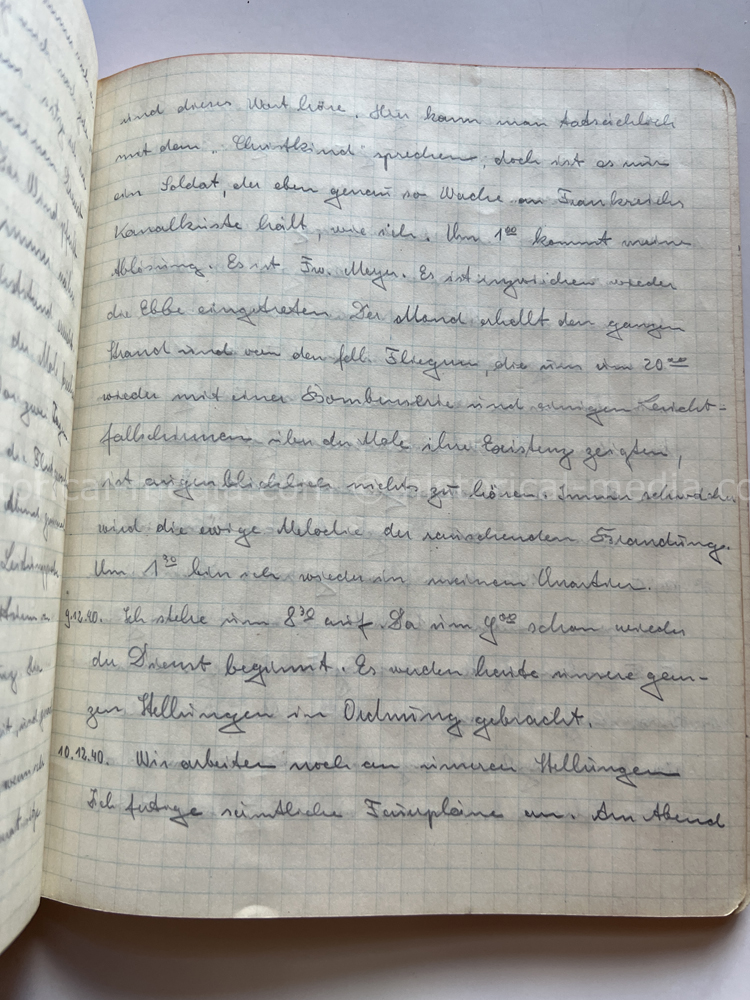 und dieses Wort höre. Hier kann man tatsächlich
mit dem "Christkind" sprechen, doch ist es nur
ein Soldat, der eben genau so Wache an Frankreichs
Kanalküste hält, wie ich. Um 1°° kommt meine
Ablösung. Es ist Fw. Meyer. Es ist inzwischen wieder
die Ebbe eingetreten. Der Mond erhellt den ganzen
Strand und von den fdl. Fliegern, die um 20°°
wieder mit einer Bombenserie und einigen Leucht-
fallschirmen über der Mole ihre Existenz zeigten,
ist augenblicklich nichts zu hören. Immer
wird die ewige Melodie der rauschenden Brandung.
Um 1³⁰ bin ich wieder in meinem Quartier.
9.12.40. Ich stehe um 8³⁰ auf. Da um 9°° schon wieder
der Dienst beginnt. Es werden heute unsere gan-
zen Stellungen in Ordnung gebracht.
10.12.40. Wir arbeiten noch an unseren Stellungen
Ich fertige sämtliche Feuerpläne an. Am Abend
historical-media.com © historical-media.com